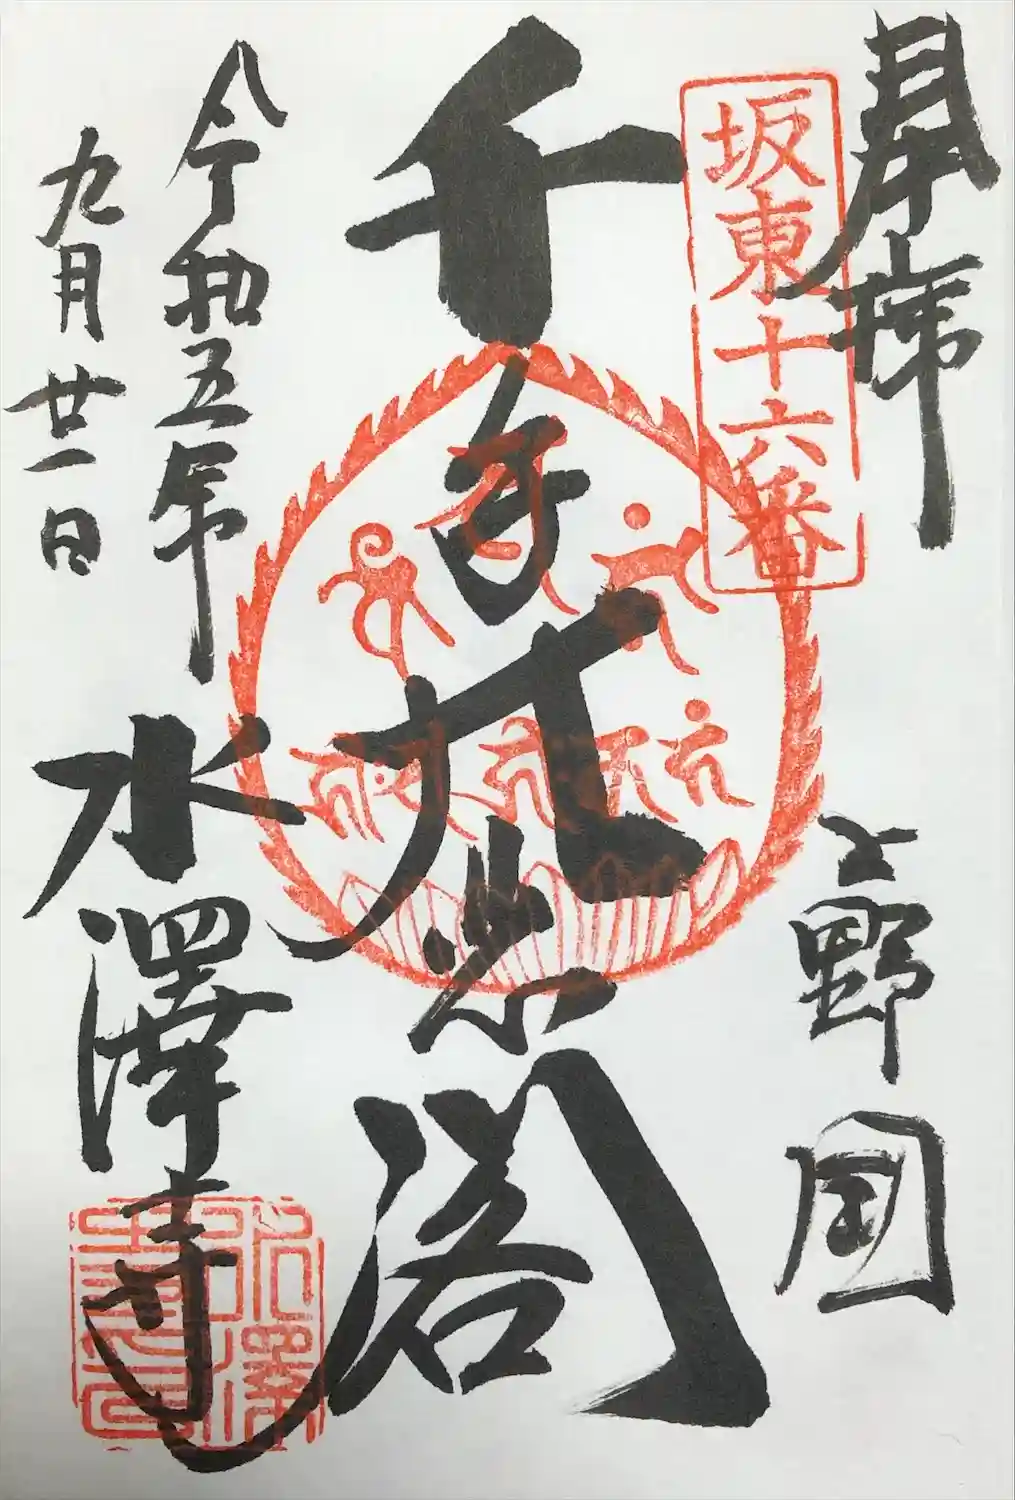 奉拝
上野国
坂東十六番
千手大悲閣
令和五年
九月廿一日
水澤寺